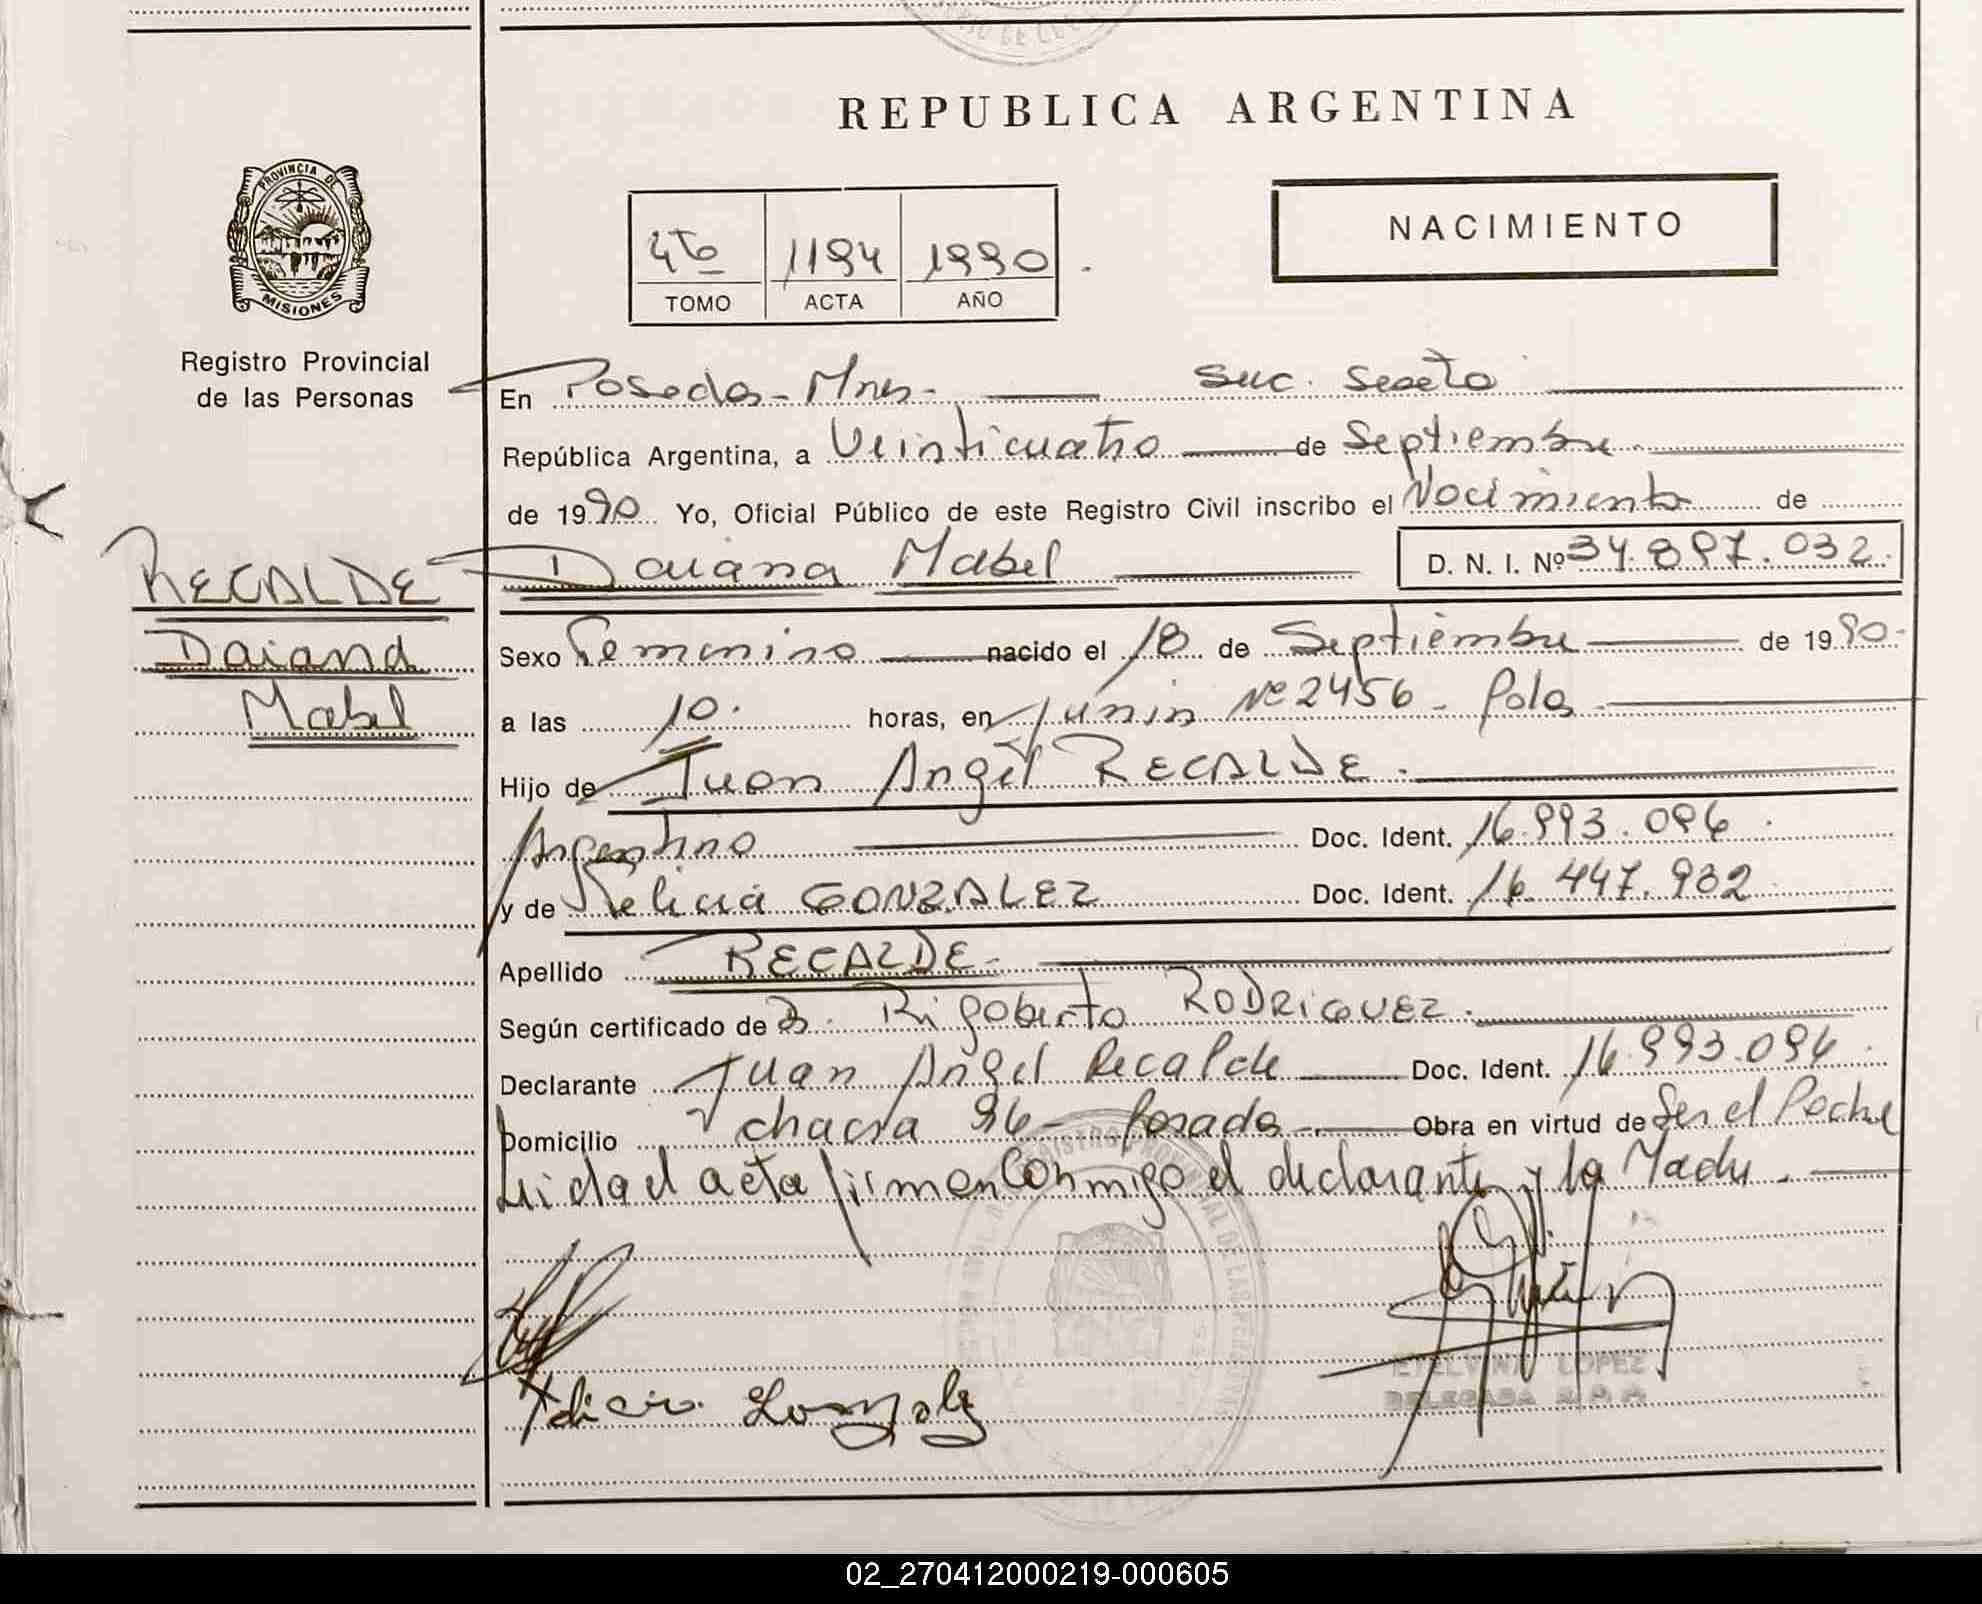 REPUBLICA ARGENTINA
PROVINCIA DE
MISIONES
Registro Provincial
de las Personas
4to 1194 1990
TOMO ACTA AÑO
NACIMIENTO
En Posadas - Mnes - Suc. Sexta
República Argentina, a Veinticuatro de Septiembre
de 1990 Yo, Oficial Público de este Registro Civil inscribo el Nacimiento de
RECALDE
Daiana
Mabel
Daiana Mabel D. N. I. Nº 34.897.032.
Sexo Femenino nacido el 18 de Septiembre de 1990.
a las 10. horas, en Junin Nº 2456 - Pdas
Hijo de Juan Angel RECALDE.
Argentino Doc. Ident. 16.993.096.
y de Felicia GONZALEZ Doc. Ident. 16.447.932
Apellido RECALDE -
Según certificado de D. Rigoberto RODRIGUEZ.
Declarante Juan Angel Recalde Doc. Ident. 16.993.096.
Domicilio chacra 96 - Posadas Obra en virtud de Ser el Padre
Leida el acta firman conmigo el declarante y la Madre.
Felicia Gonzalez
ETELVINA LOPEZ
DELEGADA
02_270412000219-000605